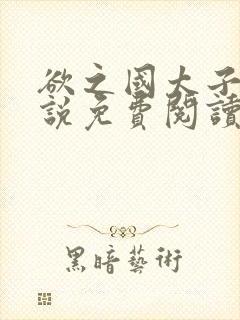 欲之國大子
說免費閱讀
黑暗藝術